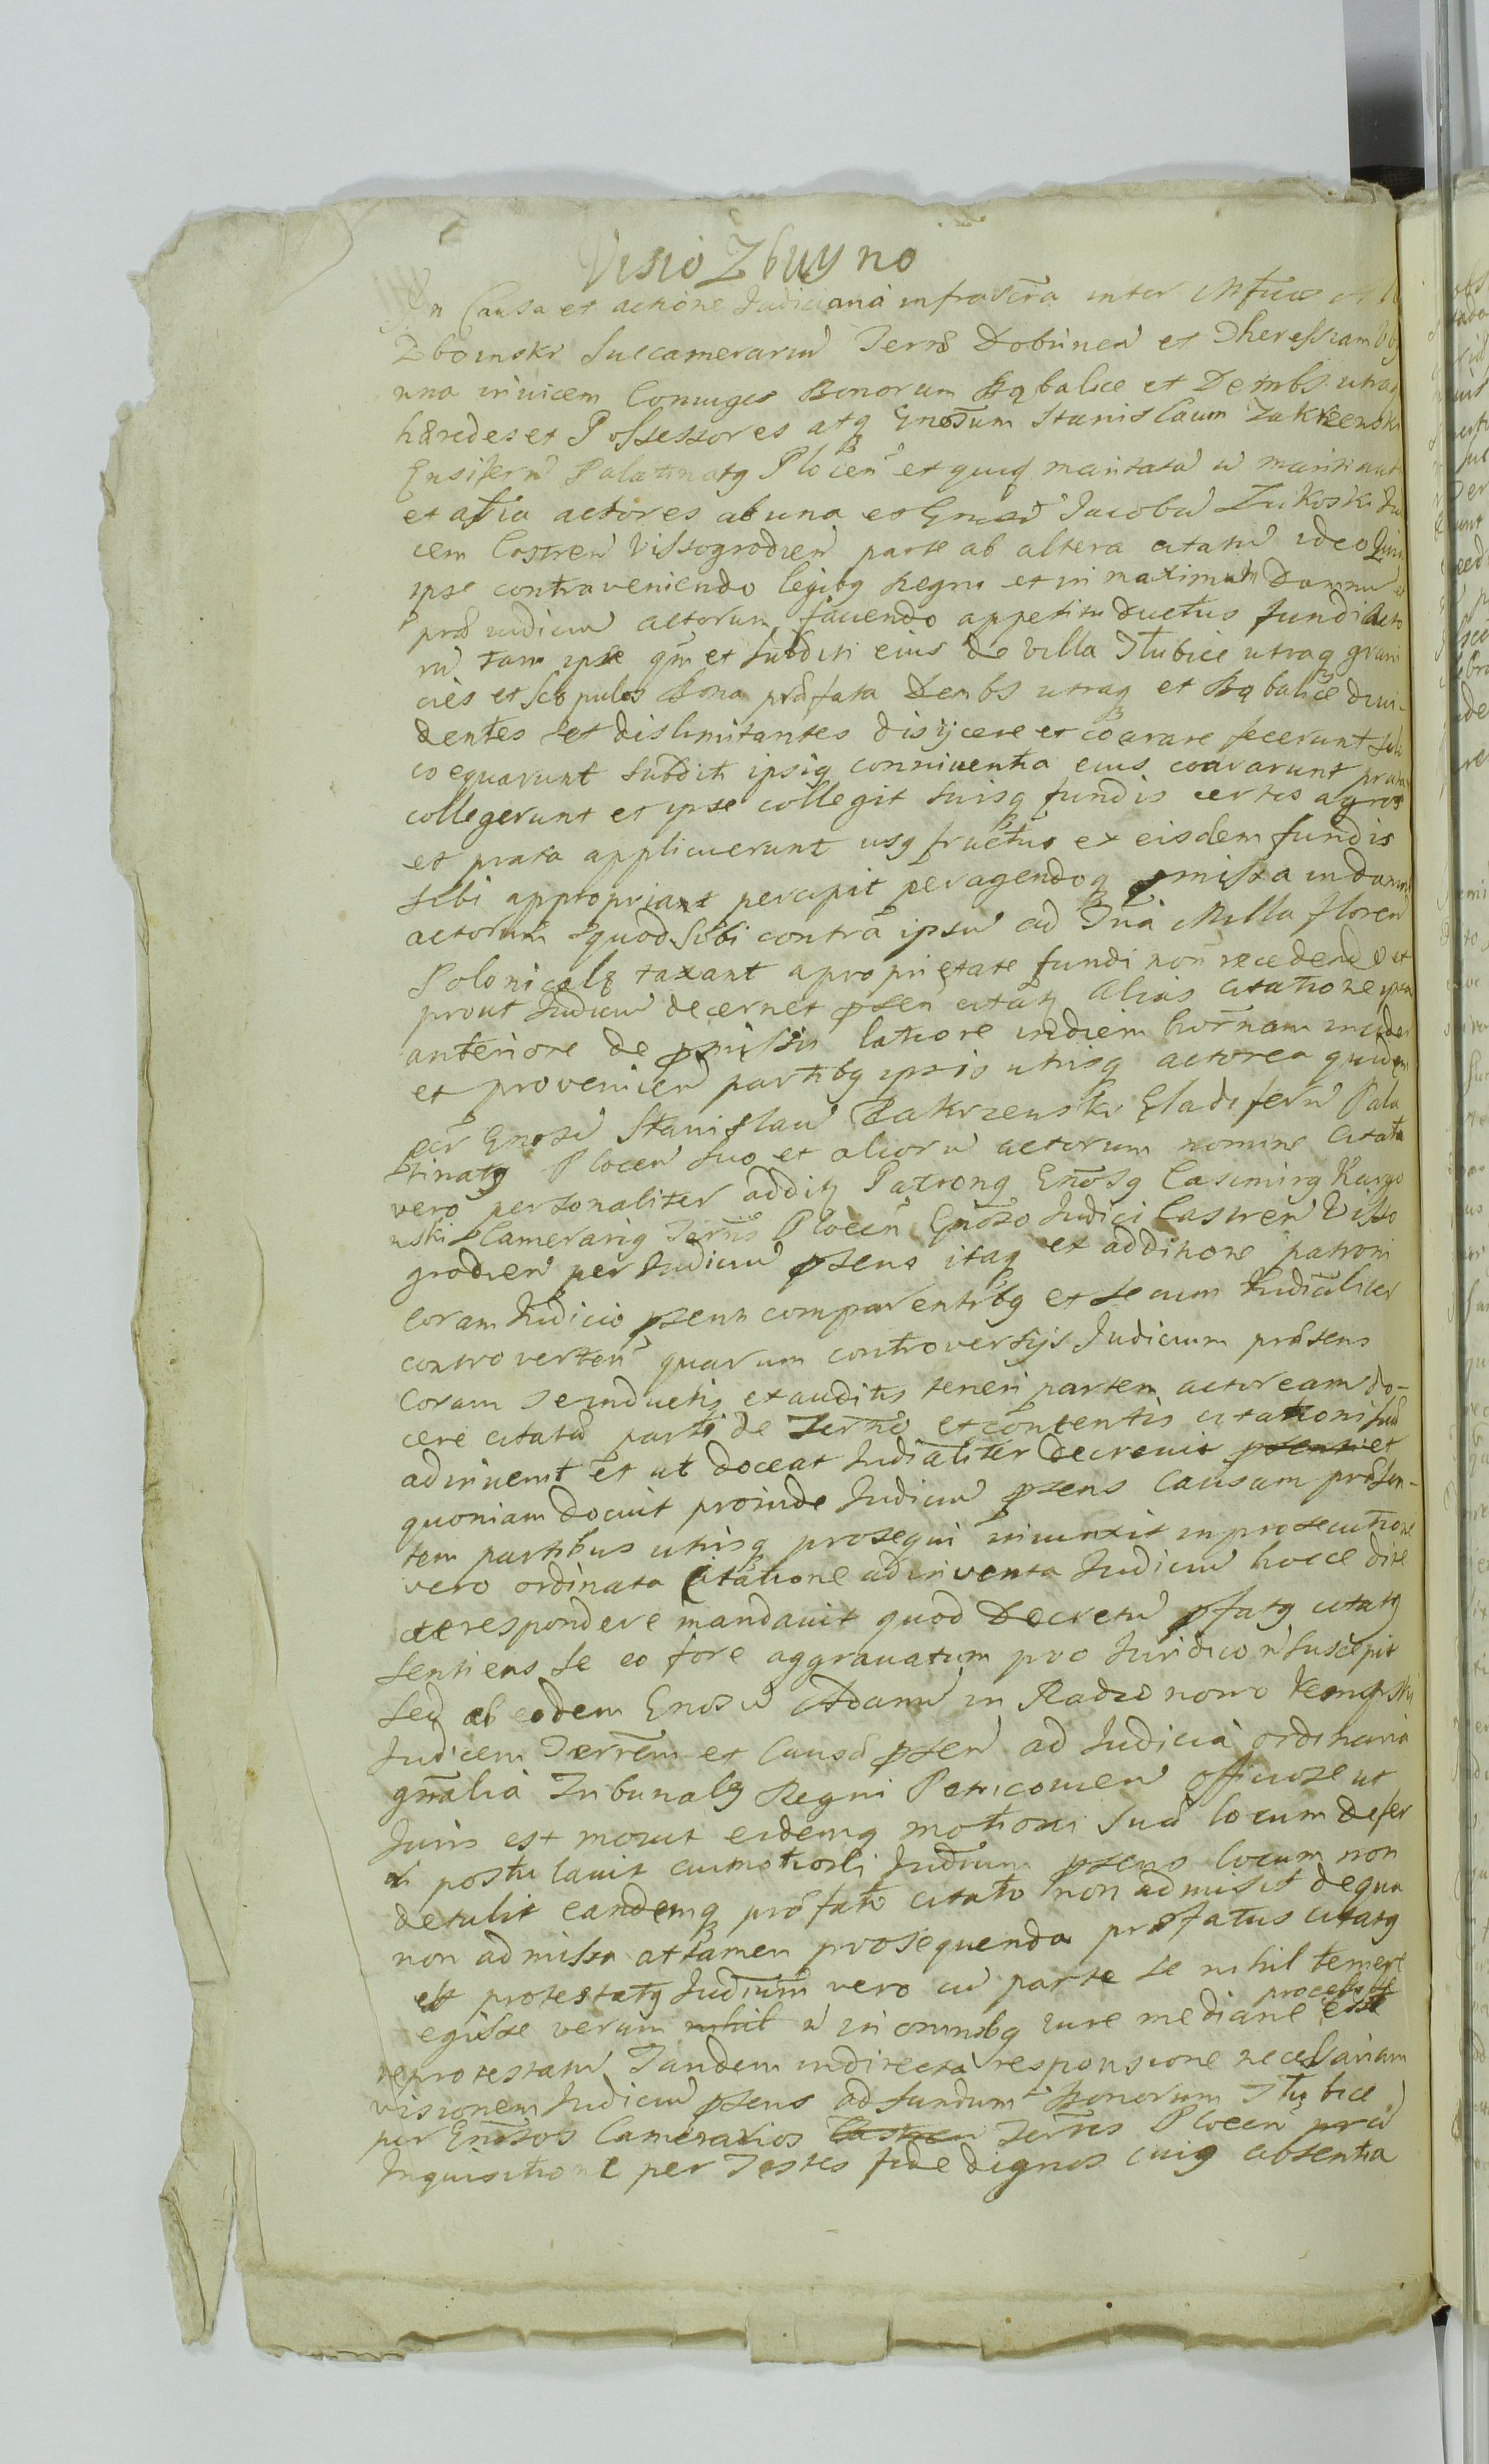 Visio Zbuyno
In Causa et actione Judiciaria infrascrã inter Mfucos
Zboinski Succamerariũ Terræ Dobrineñ et Theressiam
una invicem Coniuges Bonorum Bąbalice et Dembs utraq
hæredes et Possessores atq Gnosum Stanislaum Zakrzenski
Ensiferũ Palatinatq Plocen̄ et quiq maritata ũ mariti aut
et alia actores ab una et Gnosũ Jacobũ Zukoski Ju
cem Castreñ Vissogrodieñ parte ab altera citatũ ideo Quia
ipse contraveniendo legibq Regni et in maximum Damnũ et
præiudiciũ actorum favendo appetitu ductus fundi acto
rũ tam ipse qm̄ et subditi eius de Villa Itubice utraq grani
cies et scopulos Bona præfata Dembs utraq et Bąbalice divi-
dentes et dislimitantes disijcere et coarare fecerunt solo
coequarunt subditi ipsiq conniventia eius coararunt prata
collegerunt et ipse collegit suisq fundis certos agros
et prata applicuerunt usq fructus ex eisdem fundis
sibi appropriant percipit peragendoq pmissa in damnũ
actorum quod sibi contra ipsũ ad Tria Milla floreñ
Polonicalq taxant a proprietate fundi non recedendo et
prout Judiciũ decernet pseñ citatq alias citatione ipsa
anteriore de pmissis latiore in diem hornam inciden
et provenieñ partibq ipsis utrisq actorea quidem
per Gnosũ Stanislaũ Zakrzenski Gladiferũ Pala
tinatq Ploceñ suo et aliorũ actorum nomine Citata
vero personaliter additq Patronq Gnōsq Casimirq Kurgo
nski Camerariq Terrīs Plocen̄ Gnōso Judici Castreñ Visso
grodieñ per Judiciũ psens itaq et additione patroni
coram Judicio psenti comparentibq et secum Judicialiter
controverten̄ quarum controversijs Judicium præsens
Coram se inductis et auditis teneri partem actoream do-
cere citatã parti de Termo et contentis citationis suæ
adinvenit et ut doceat Judicialiter decrevit psenti et
quoniam docuit proinde Judiciũ psens Causam præsen-
tem partibus utrisq prosequi iniunxit in prosecutione
vero ordinata Citatione adinventa Judiciũ hocce dire
cte respondere mandavit quod Decretũ pfatq citatq
sentiens se eo fore aggravatum pro Juridico ñ suscepit
sed ab eodem Gnosũ Adamũ in Radzonowo Kempski
Judicem Terrem̄ et Causã pseñ ad Judicia ordinaria
gn̄alia Tribunalq Regni Petricovieñ officiose ut
Juris est movit eidemq motioni suæ locum defer
ri postulavit cui motioni Judicium psens locum non
detulit eandemq præfato citato non admisit de qua
non admissa attamen prosequenda præfatus citatq
est protestatq Judicium vero cũ parte se nihil temere
egisse verum nihil ũ in omnibq iure mediane processisse esse
reprotestatũ Tandem indirecta responsione necessariam
visionem Judiciũ psens ad fundum Bonorum Itubice
per Gnōsos Camerarios Castren Terrīs Plocen̄ præũ
Inquisitione per Testes fide dignos cuiq absentia